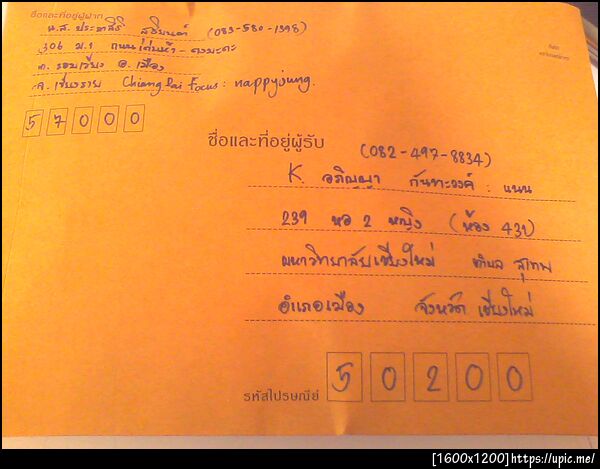 ชื่อและที่อยู่ผู้ฝาก
น.ส. ประชาสิริ (083-580-1398)
306 ม.1 ถนน
ต. รอบเวียง อ. เมือง
จ. เชียงราย Chiang Rai Focus: nappyjung.
57000
ชื่อและที่อยู่ผู้รับ
(082-497-8834)
K. อภิญญา กันทะวงค์ : แนน
239 หอ 2 หญิง (ห้อง 431)
มหาวิทยาลัยเชียงใหม่ ตำบล สุเทพ
อำเภอเมือง จังหวัด เชียงใหม่
รหัสไปรษณีย์ 50200
[1600x1200]https://upic.me/